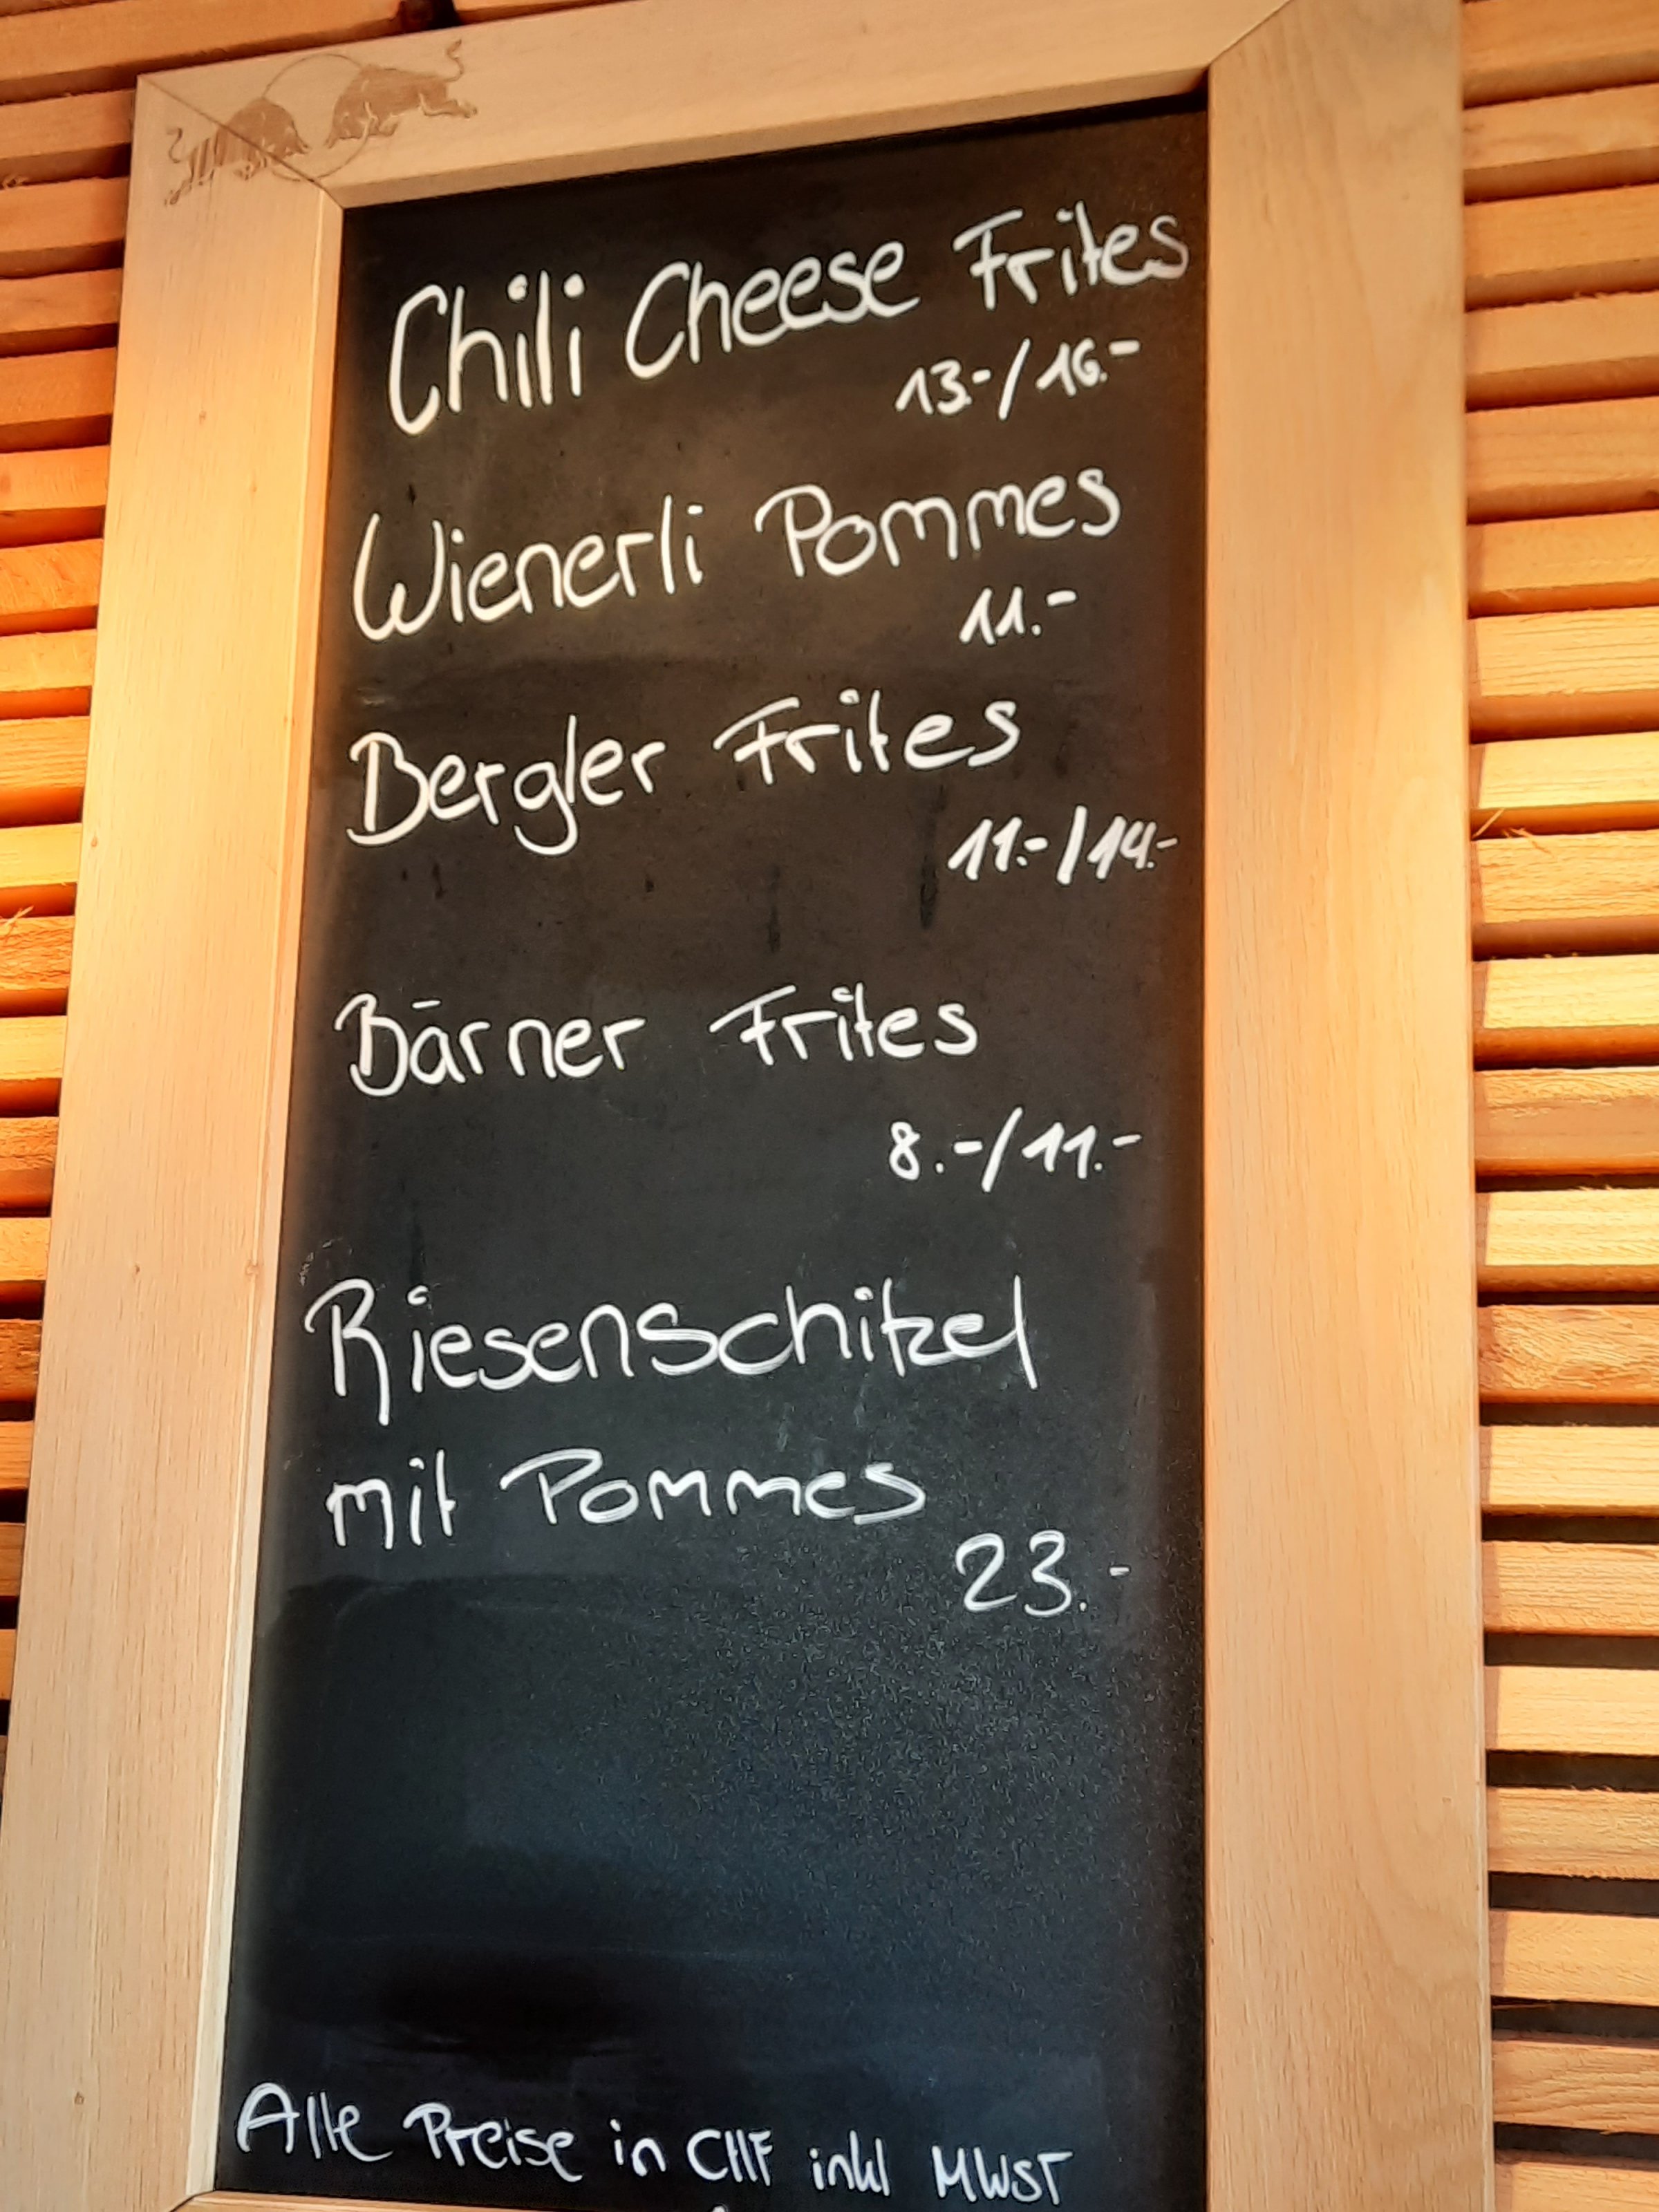 Chili Cheese Frites
13.-/16.-
Wienerli Pommes
11.-
Bergler Frites
11.-/14.-
Bärner Frites
8.-/11.-
Riesenschitzel
mit Pommes
23.-
Alle Preise in CHF inkl MWST